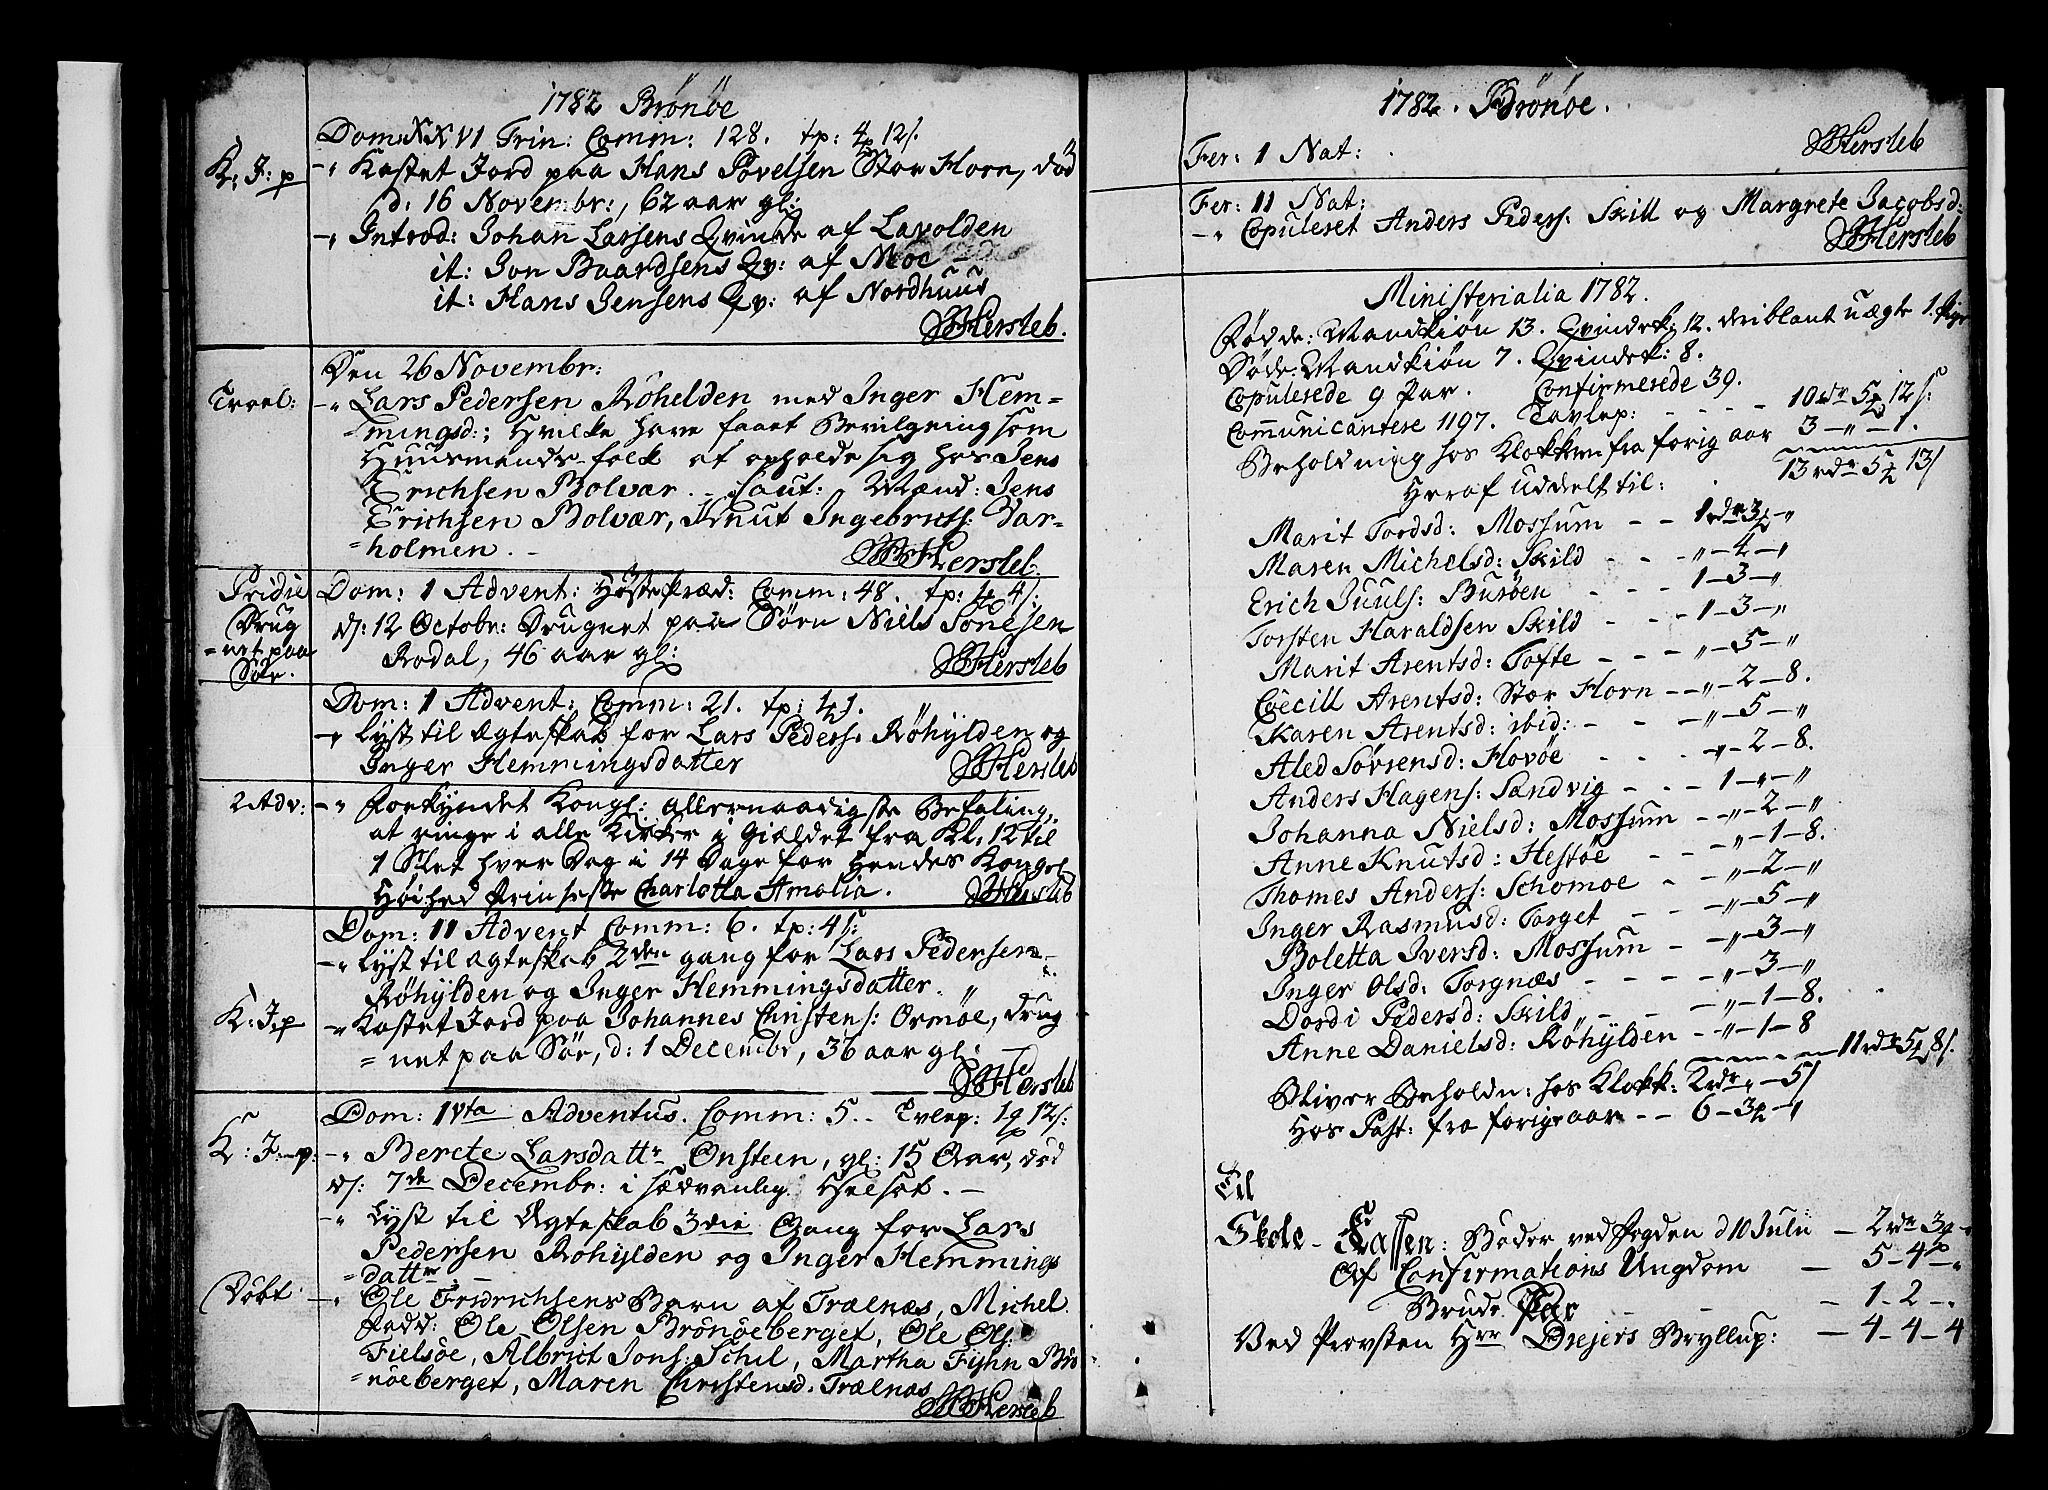 1782 Brönöe
Dom: XXVI Trin: Comm: 128. tp: 4 12 s.
K: J: p
-" Kastet Jord paa Hans Povelsen Stor Horn, död
d: 16 Novembr:, 62 aar gl:
-" Introd: Johan Larsens Qvinde af Lavolden
it: Jon Baardsens Qv: af Moe
it: Hans Jensens Qv: af Nordhuus
Hersleb.
Den 26 Novembr:
Trol:
-" Lars Pedersen Röhelden med Inger Hem-
=mingsd:; hvilke have faaet Bevilgning som
Huusmands-folk at opholde sig hos Jens
Erichsen Bolvær. Caut: Mænd: Jens
Erichsen Bolvær, Knut Ingebrictss:
=holmen.
Hersleb
Pridie
Dom: 1 Advent: Höstpræd: Comm: 48. tp: 4 s:
Drug
=net paa
Söe.
d: 12 Octobr: Drugnet paa Söen Niels Tonesen
Rodal, 46 aar gl:
Hersleb
Dom: 1 Advent: Comm: 21. tp:
-" Lyst til Ægteskab for Lars Peders: Röhylden og
Inger Hemmingsdatter
Hersleb
2 Adv:
-" Forkyndet Kongl: allernaadigste Befaling,
at ringe i alle Kirker i Gieldet fra Kl: 12 til
1 Slet hver Dag i 14 Dage for Hendes Kongel
Höihed Prinsesse Charlotta Amalia.
Hersleb
Dom: 11 Advent Comm: 6. tp: 4 s:
-" Lyst til Ægteskab 2den gang for Lars Pedersen
Röhylden og Inger Hemmingsdatter.
K: J: p
-" Kastet Jord paa Johannes Christens: Ormöe, drug
=net paa Söe, d: 1 Decembr, 36 aar gl:
Hersleb
Dom: IVta Adventus. Comm: 5. Tvlep: 12 s:
K: J: p:
-" Berete Larsdattr Onsteen, gl: 15 Aar, död
d: 7de Decembr: i sædvanlig Helsot.
-" Lyst til Ægteskab 3die Gang for Lars
Pedersen Röhylden og Inger Hemmings
=dattr.
Döbt
-" Ole Fridrichsens Barn af Trælnæs, Michel.
Fadd: Ole Olsen Brönöeberget, Ole Ols:
Tielsöe, Albrict Jons: Schil, Martha Fyhn Brö
=nöeberget, Maren Christensd: Trælnæs
Hersleb
1782. Brönöe.
Fer: 1 Nat:
Hersleb
Fer: 11 Nat:
-" Copuleret Anders Peders: Skill og Margrete Jacobsd:
Hersleb
Ministerialia 1782.
Födde: Mandkiön 13. Qvindek: 12. deriblant uægte 1. Pige
Döde: Mandkiön 7. Qvindek: 8.
Copulerede 9 Par. Confirmerede 39.
Communicantere 1197. Tavlep: - - - 10 rdr 5 12 s:
Beholdning hos Klokkeren fra forig aar 3 - " - 1.
13 rdr 5 13 s
Heraf uddelt til:
Marit Tordsd: Mossum - - 1 rdr 3 - "
Maren Michelsd: Skild - - - " - 4 - "
Erich Juuls: Buröen - - - 1 - 3 - "
Torsten Haraldsen Skild - - - 1 - 3 - "
Marit Arentsd: Tofte - - - " - 5 - "
Cecill Arentsd: Stor Horn - - " - 2 - 8.
Karen Arentsd: ibid: - - - " - 5 - "
Aled Sörensd: Hovöe - - - " - 2 - 8.
Anders Hagens: Sandvig - - - 1 - " - "
Johanna Nielsd: Mossum - - " - 2 - "
Anne Knutsd: Hestöe - - - " - 1 - 8.
Thomes Anders: Schomoe - - " - 2 - "
Inger Rasmusd: Torget - - " - 5 - "
Boletta Iversd: Mossum - " - 3 - "
Inger Olsd: Torgnæs - - - - " - 3 - "
Dordi Pedersd: Skild - - " - 1 - 8.
Anne Danielsd: Röhylden - " - 1 - 8
11 rdr 5 8 s.
Bliver Beholdn: hos Klokk: 2 rdr " - 5 s
Hos Past: fra forige aar - - 6 - 3 - "
Til
Skole-Cassen: Böder ved Fogden d 10 Julii - 2 rdr 3
Af Confirmations Ungdom - 5 - 4 - "
Brude Par - - - 1 - 2 - "
Ved Provsten Hrr Drejers Bryllup: - 4 - 4 - 4